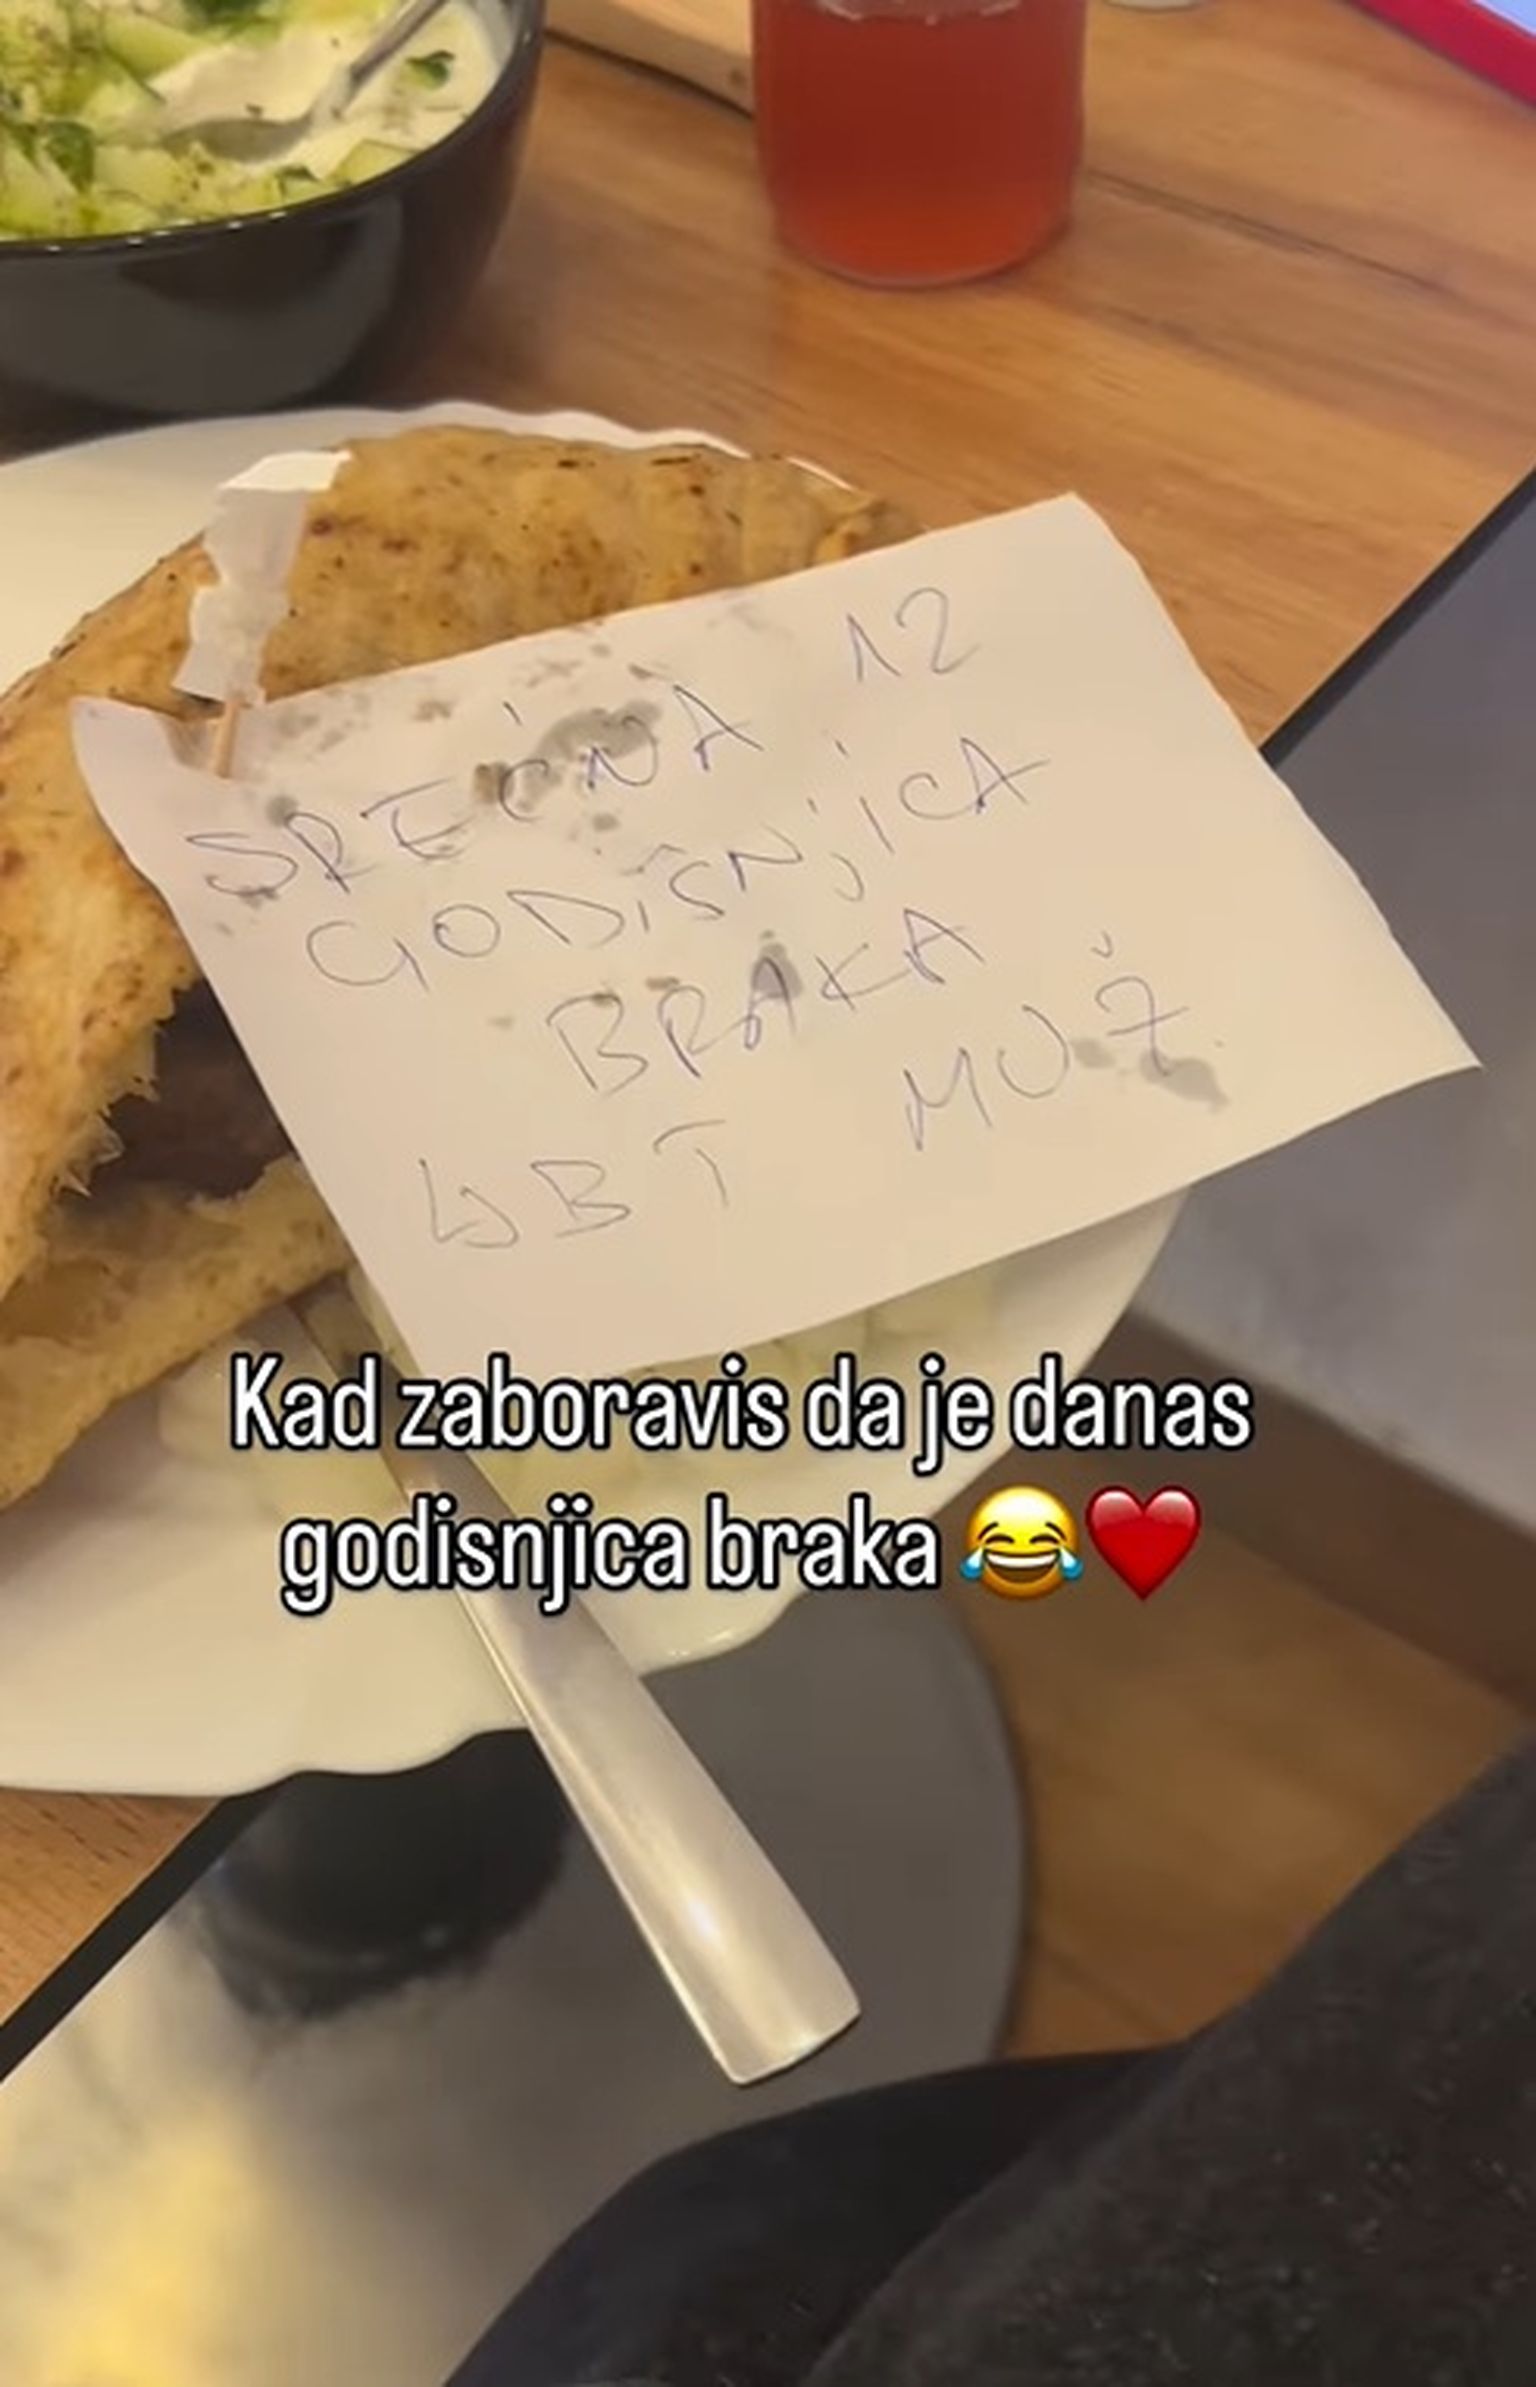 SREĆNA 12
GODIŠNjICA
BRAKA
LJBT MUŽ
Kad zaboravis da je danas
godisnjica braka 😂❤️